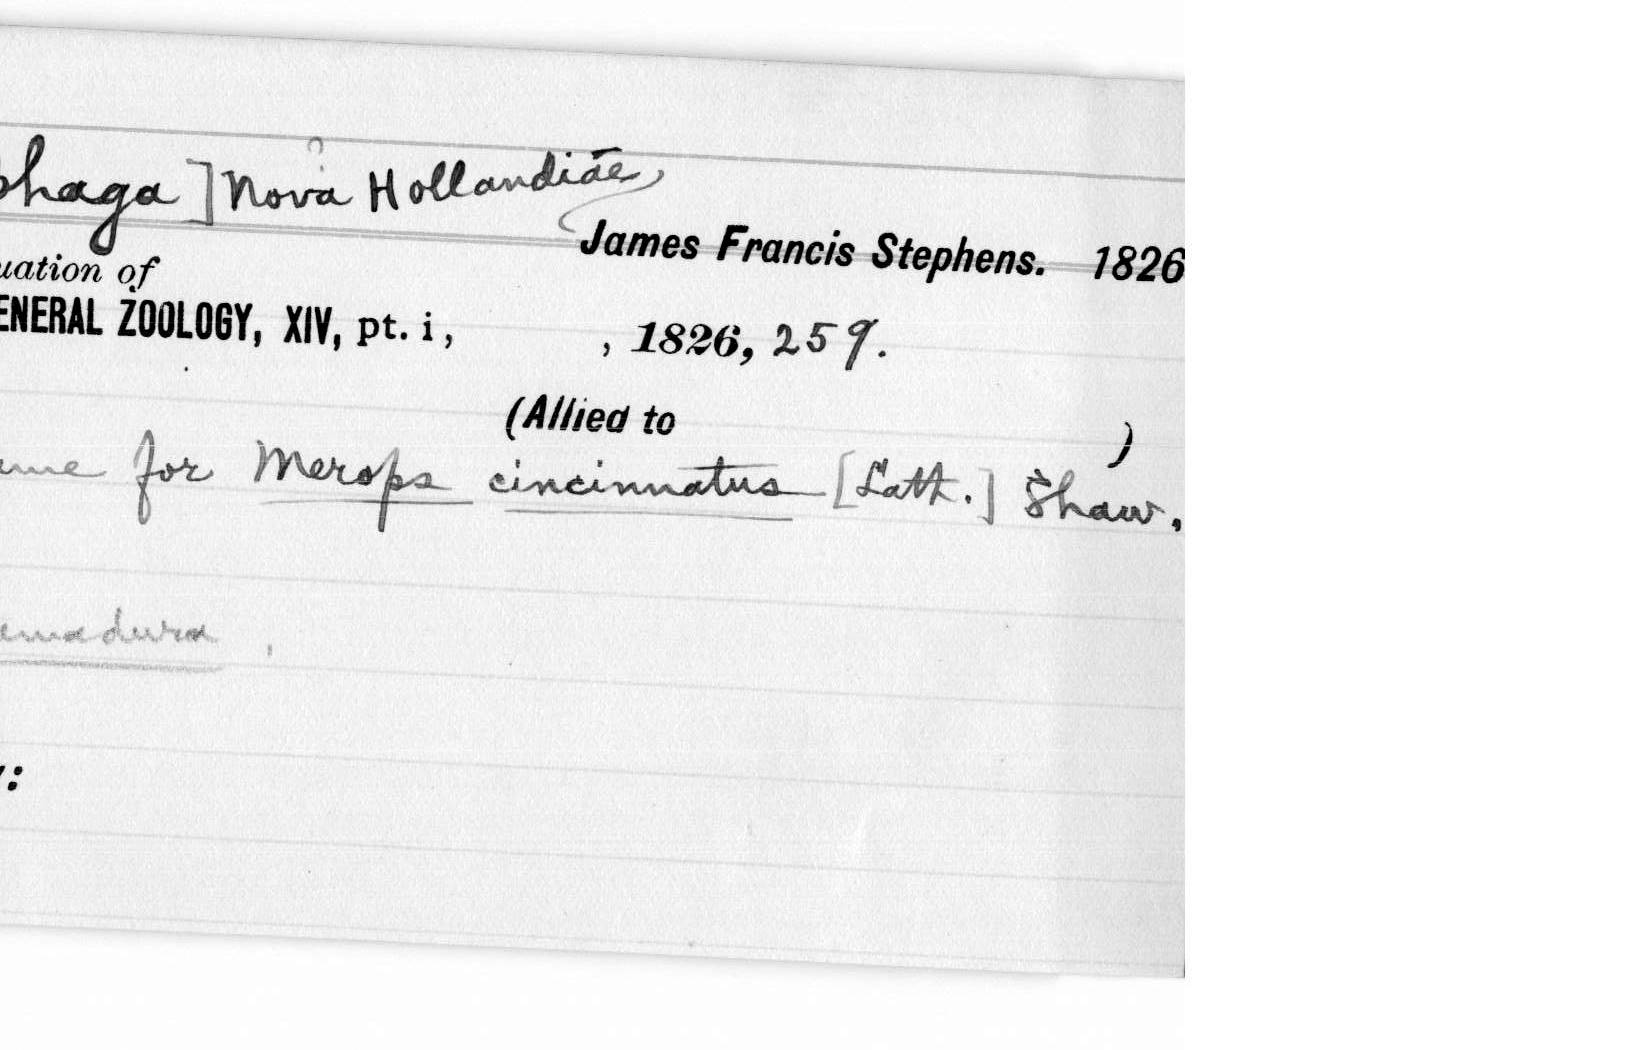 phaga] Nova Hollandiae,
James Francis Stephens. 1826
uation of
ENERAL ZOOLOGY, XIV, pt. i, , 1826, 259.
(Allied to )
ame for Merops cincinnatus [Lath.] Shaw,
emadura.
: